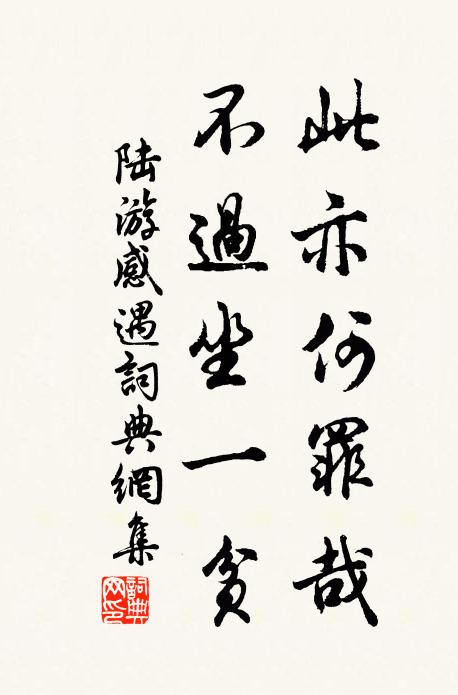 此亦何罪哉
不過坐一貧
陆游感遇詞典網集
詞典
网印